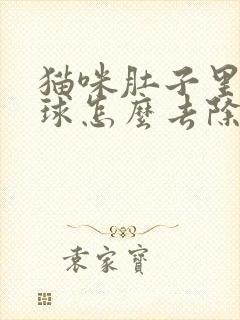 猫咪肚子里
球怎麽去除
袁家寶